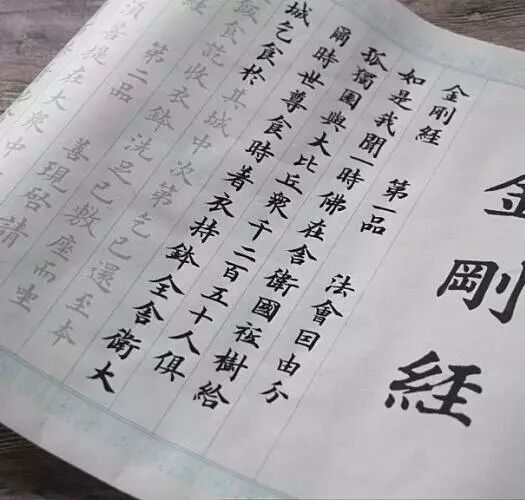 金剛経
金剛経 第一品 法會因由分
如是我聞一時佛在舍衛國祇樹給
孤獨園與大比丘眾千二百五十人俱
爾時世尊食時著衣持鉢全舍衛大
城乞食於其城中次第乞已還至本
飯食訖收衣鉢洗足已敷座而坐
経 第二品 善現啓請
須菩提在大眾中